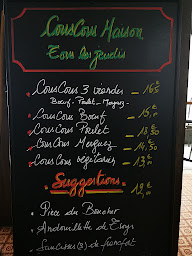 CousCous Maison
Tous les jeudis
CousCous 3 viandes _ 16€
Boeuf - Poulet - Merguez
CousCous Boeuf _ 15,€
CousCous Poulet _ 13,80
CousCous Merguez _ 14,50
CousCous végétarien _ 13€
Suggestions
Pièce du Boucher
Andouillette de Troyes
Saucisses (2) de